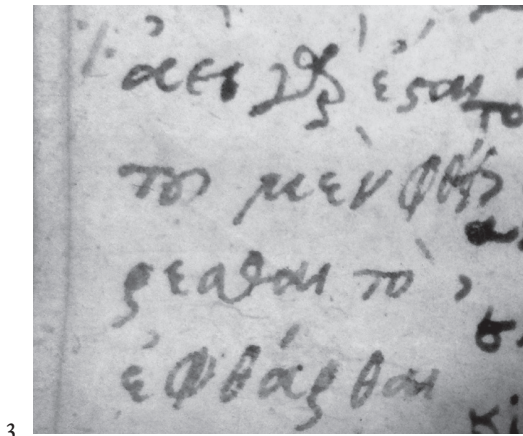 ἀεὶ γὰρ ἔσται
τοῦ μὲν φθεί
ρεσθαι τὸ
ἐφθάρθαι
3